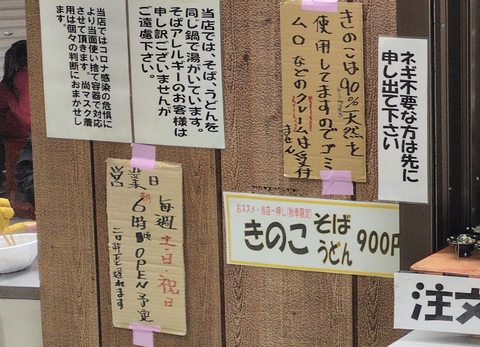 当店ではコロナ感染の危惧に
より当面使い捨て容器で対応
させて頂きます。尚マスク着
用は個々の判断におまかせし
ます。
当店では、そば、うどんを
同じ鍋で湯がいています。
そばアレルギーのお客様は
申し訳ございませんが
ご遠慮下さい。
きのこは90%天然を
使用してますのでゴミ
ムシなどのクレームは受付
ません
ネギ不要な方は先に
申し出て下さい
営業日
毎週土日・祝日
朝6時頃OPEN予定
おススメ・当店一押し(秋季限定)
きのこ そば うどん 900F
注文